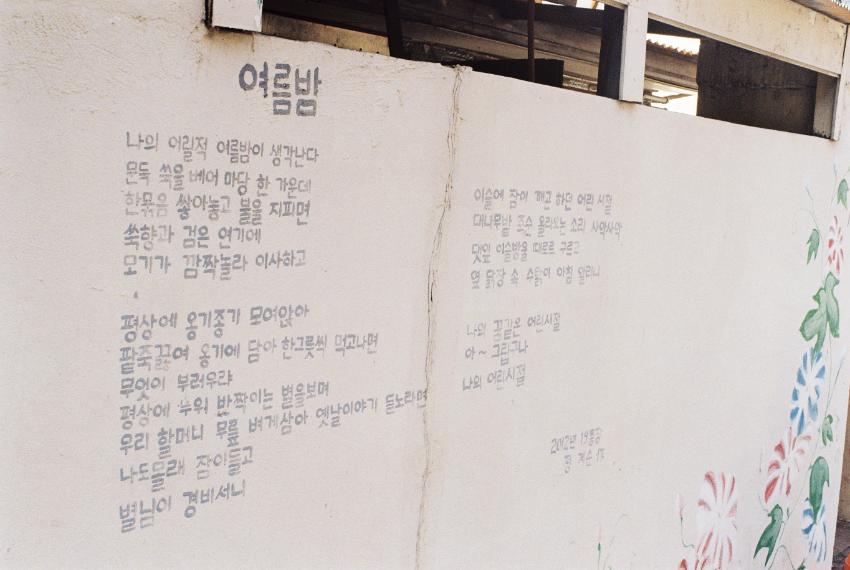 여름밤
나의 어릴적 여름밤이 생각난다
문득 쑥을 베어 마당 한 가운데
한묶음 쌓아놓고 불을 지피면
쑥향과 검은 연기에
모기가 깜짝놀라 이사하고
평상에 옹기종기 모여앉아
팥죽끓여 옹기에 담아 한그릇씩 먹고나면
무엇이 부러우랴
평상에 누워 반짝이는 별을보며
우리 할머니 무릎 벼게삼아 옛날이야기 듣노라면
나도몰래 잠이들고
별님이 경비서니
이슬에 잠이 깨곤 하던 어린 시절
대나무밭 죽순 올라오는 소리 사악사악
댓잎 이슬방울 때르르 구르고
옆 닭장 속 수탉이 아침 알리니
나의 꿈같은 어린시절
아~ 그립구나
나의 어린시절
2012년